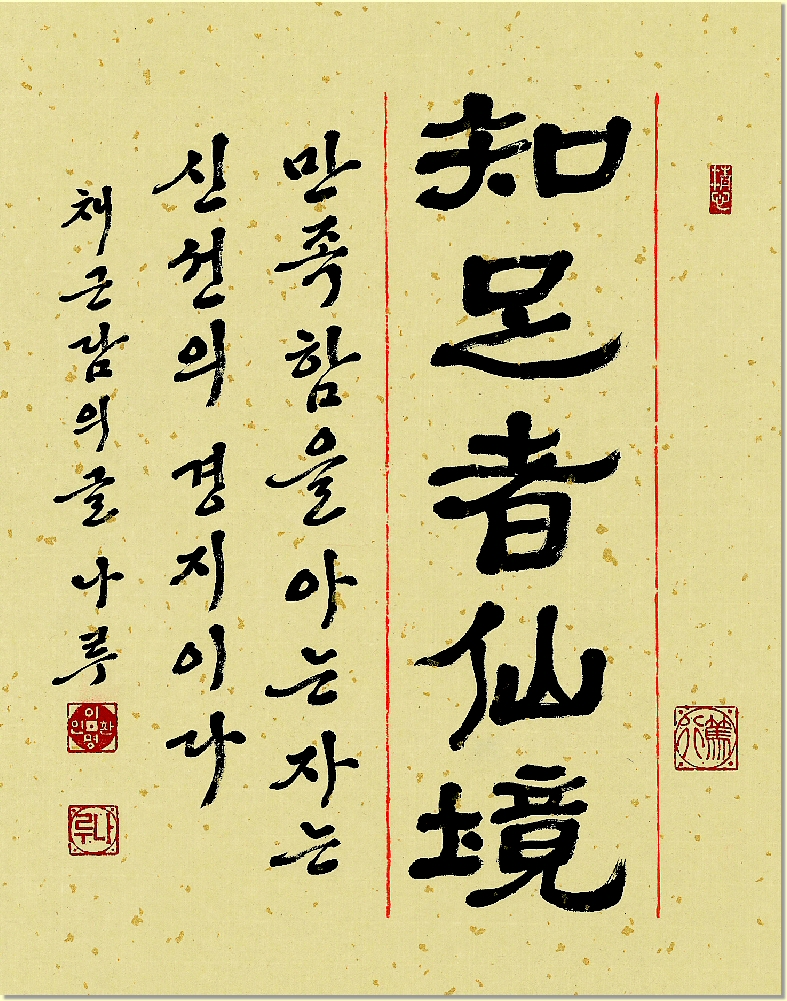 知足者仙境
만족함을 아는 자는
신선의 경지이다
채근담의 글 나루
이환명인
나루